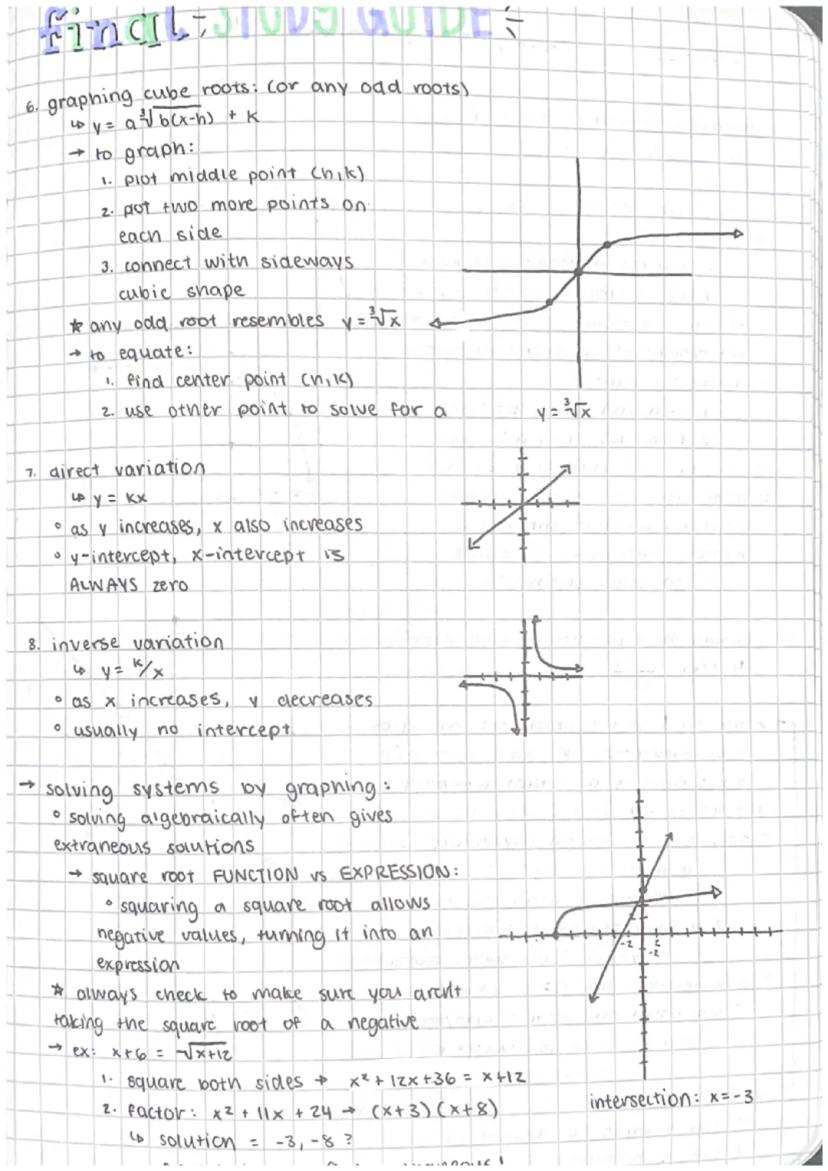 final STUDY GUIDE
6. graphing cube roots: (or any odd roots)
↳ y = a∛b(x-h) + k
→ to graph:
1. plot middle point (h,k)
2. pot two more points on
each side
3. connect with sideways
cubic shape
* any odd root resembles y = ∛x
→ to equate:
1. find center point (h,k)
2. use other point to solve for a
y = ∛x
7. direct variation
↳ y = kx
° as y increases, x also increases
° y-intercept, x-intercept is
ALWAYS zero
8. inverse variation
↳ y = k/x
° as x increases, y decreases
° usually no intercept
→ solving systems by graphing:
° solving algebraically often gives
extraneous solutions
→ square root FUNCTION vs EXPRESSION:
° squaring a square root allows
negative values, turning it into an
expression
* always check to make sure you aren't
taking the square root of a negative
→ ex: x+6 = √x+12
1. square both sides → x² + 12x+36 = x+12
2. factor: x² + 11x + 24 → (x+3)(x+8)
↳ solution = -3, -8 ?
-2 2
-2
intersection: x=-3